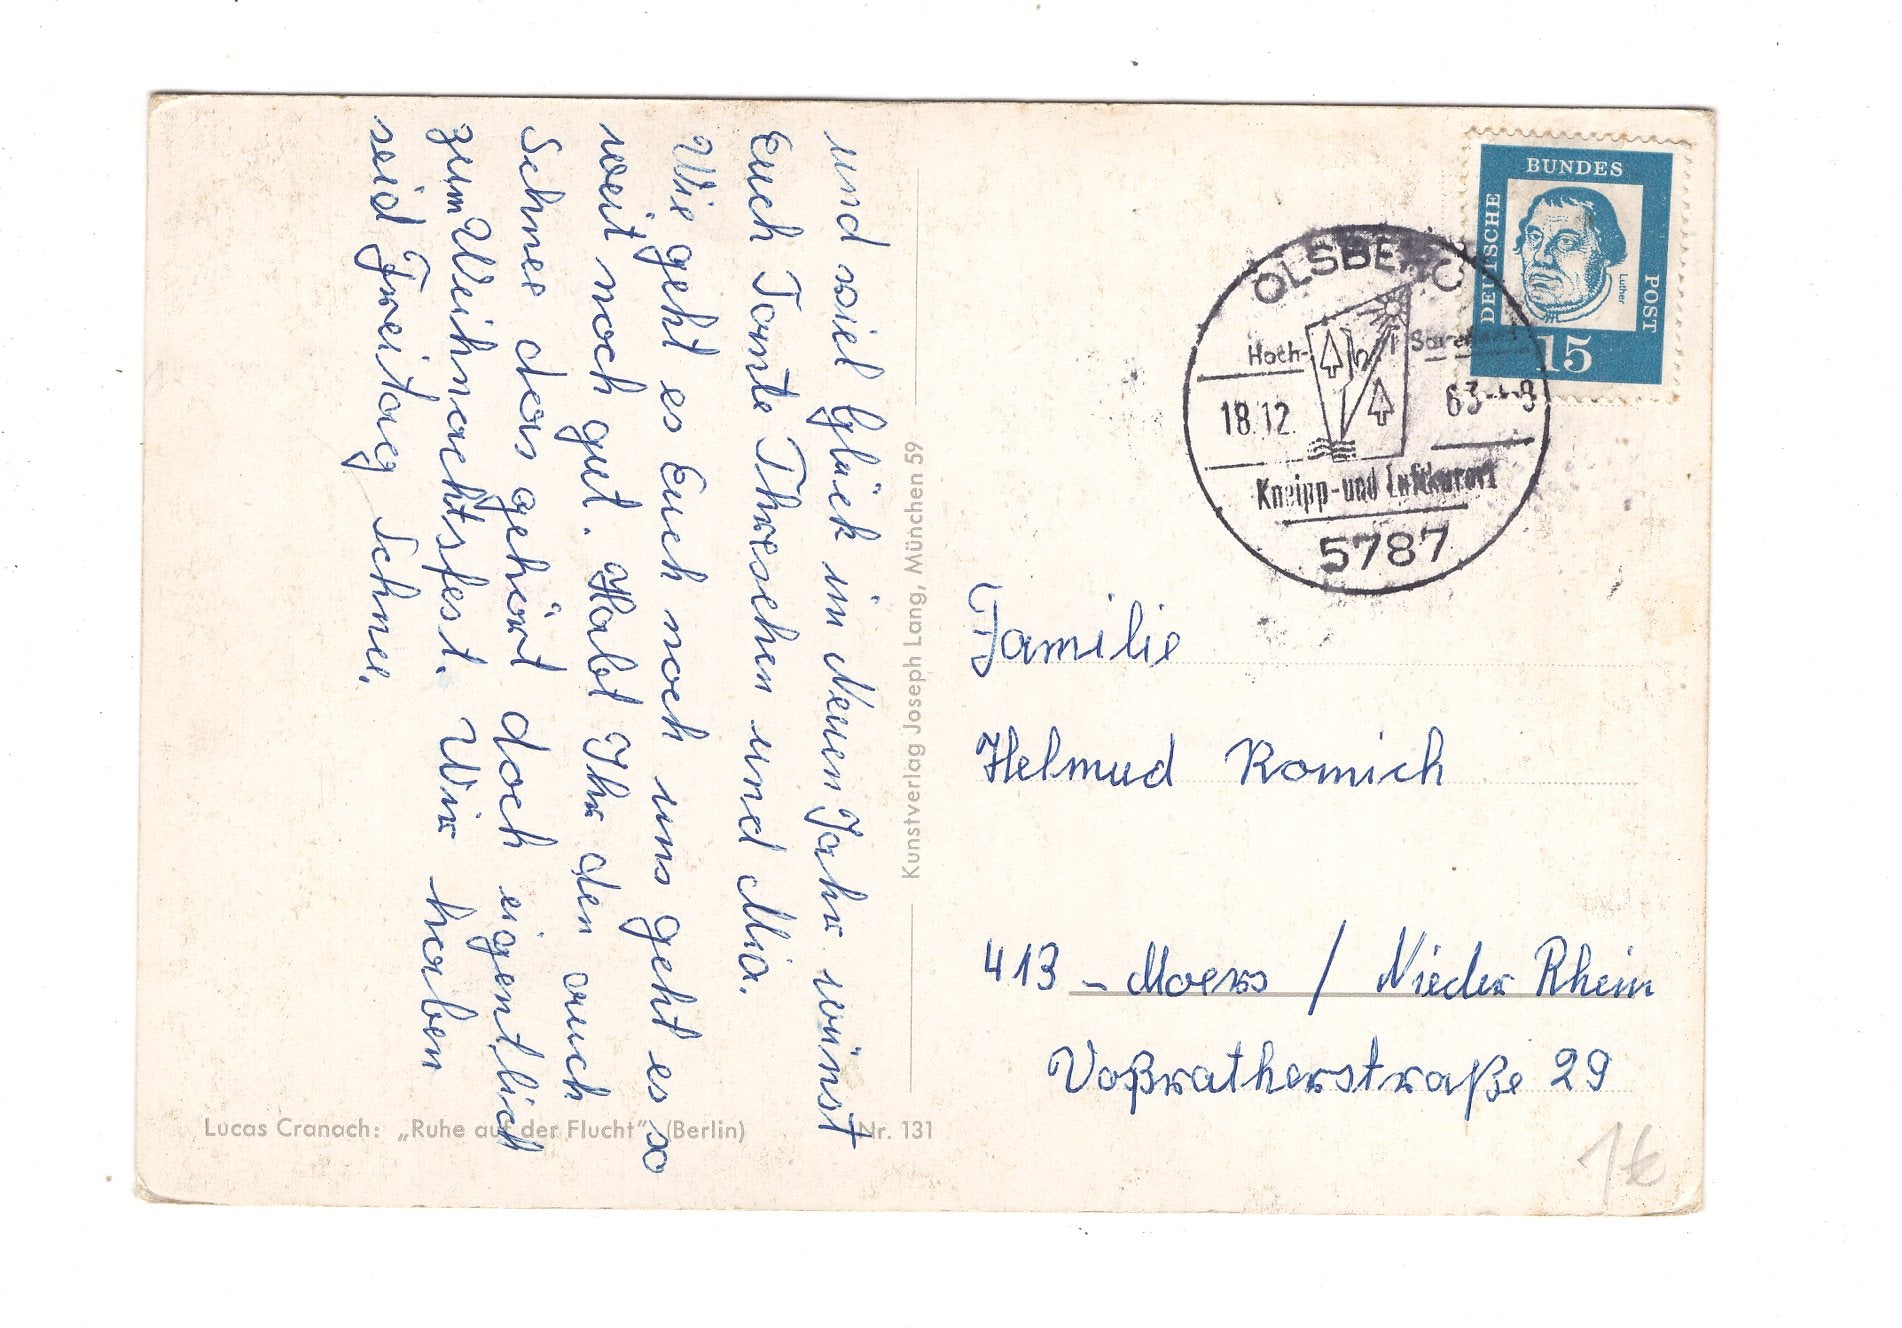 und viel Glück im Neuen Jahr wünst
Euch Tante Threschen und Mia.
Wie geht es Euch noch uns geht es so
weit noch gut. Habt Ihr den auch
Schnee das gehört doch eigentlich
zum Weihnachtsfest. Wir haben
seid Freitag Schnee.
Kunstverlag Joseph Lang, München 59
Lucas Cranach: „Ruhe auf der Flucht" (Berlin)
Nr. 131
DEUTSCHE
BUNDES
POST
Luther
15
OLSBERG
Hoch-
18.12.
63
Kneipp-und Luftkurort
5787
Familie
Helmud Romich
413 - Moers / Nieder Rhein
Voßratherstraße 29